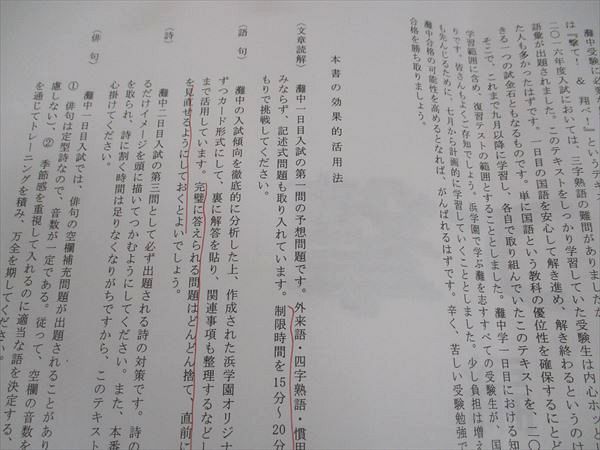 灘中受験に必
は『撃て！ ＆ 翔べ！』というテキ
二〇一六年度入試においては、三字熟語の難問がありましたが
語彙が出題されました。このテキストをしっかり学習していた受験生は内心ホッと
た人も多かったはずです。一日目の国語を安心して解き進め、解き終わるというのは
きる一つの試金石ともなるものです。単に国語という教科の優位性を確保するにとど
そこで、これまで九月以降に学習し、各自で取り組んでいたこのテキストを、二〇
学習範囲に含め、復習テストの範囲とすることとしました。灘中学一日目における知
りです。皆さんもよくご存知でしょう。浜学園で学ぶ灘を志すすべての受験生が、国
も先んじるために、七月から計画的に学習していくこととしました。少し負担は増え
灘中合格の可能性を高めるとなれば、がんばれるはずです。辛く、苦しい受験勉強で
合格を勝ち取りましょう。
本書の効果的活用法
（文章読解）
灘中一日目入試の第一問の予想問題です。外来語・四字熟語・慣用
みならず、記述式問題も取り入れています。制限時間を15分～20分
もりで挑戦してください。
（語 句）
灘中の入試傾向を徹底的に分析した上、作成された浜学園オリジナ
ずつカード形式にして、裏に解答を貼り、関連事項も整理するなどし
まで活用しています。完璧に答えられる問題はどんどん捨て、直前に
を見直せるようにしておくとよいでしょう。
（詩）
灘中二日目入試の第三問として必ず出題される詩の対策です。詩の
るだけイメージを頭に描いてつかむようにしてください。また、本番
を取られ、詩に割く時間は足りなくなりがちですから、このテキスト
心掛けてください。
（俳 句）
灘中一日目入試では、俳句の空欄補充問題が出題されることがあり
① 俳句は定型詩なので、音数が一定である。従って、空欄の音数を
慮しない）、② 季節感を重視して入れるのに適当な語を決定する、
を通じてトレーニングを積み、万全を期してください。